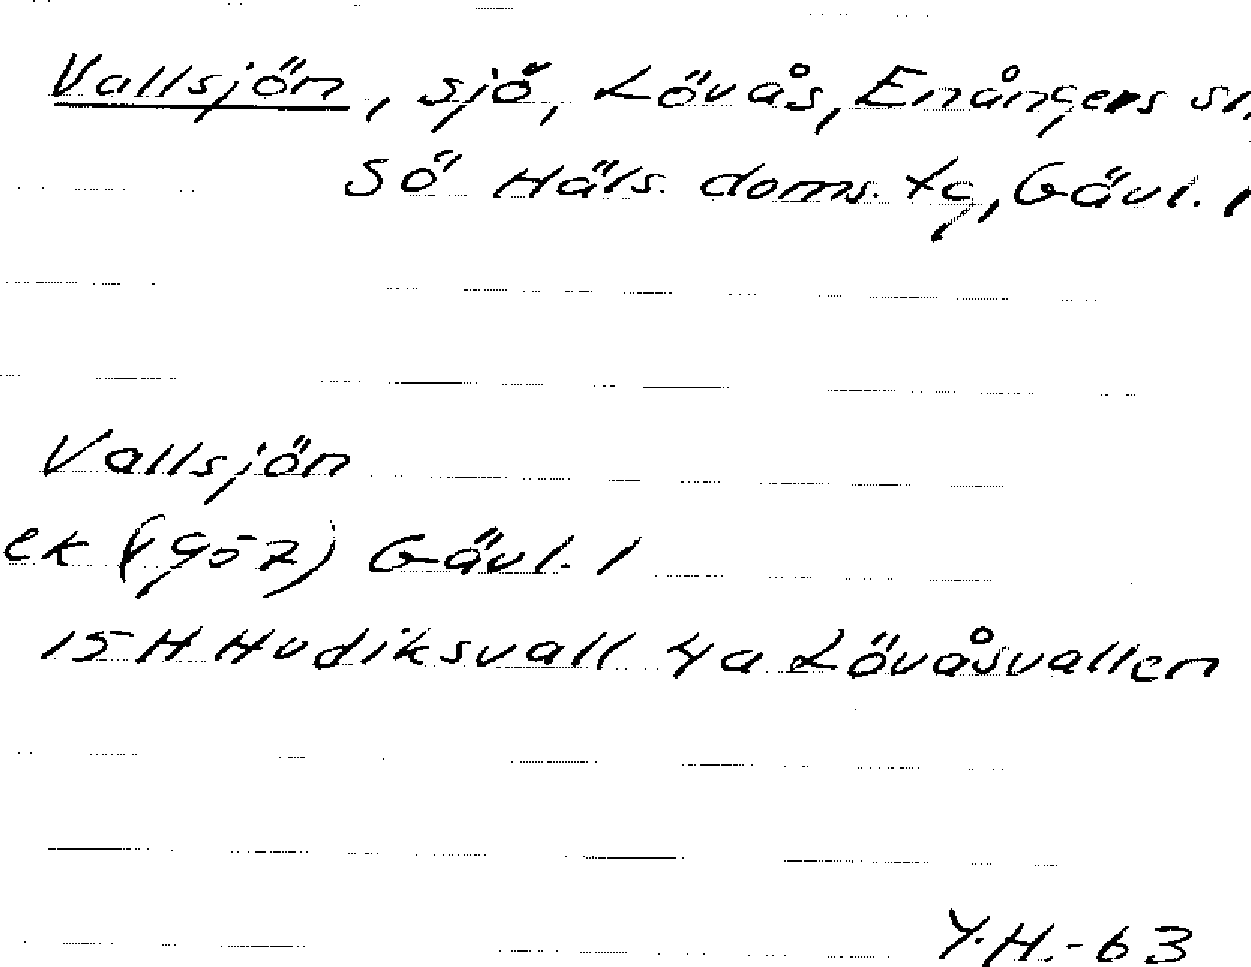 Vallsjön, sjö, Lövås, Enångers sn,
Sö Häls. doms. tg, Gävl. l
Vallsjön
ek (1957) Gävl. l
15 H Hudiksvall 4a Lövåsvallen
Y.H.-63